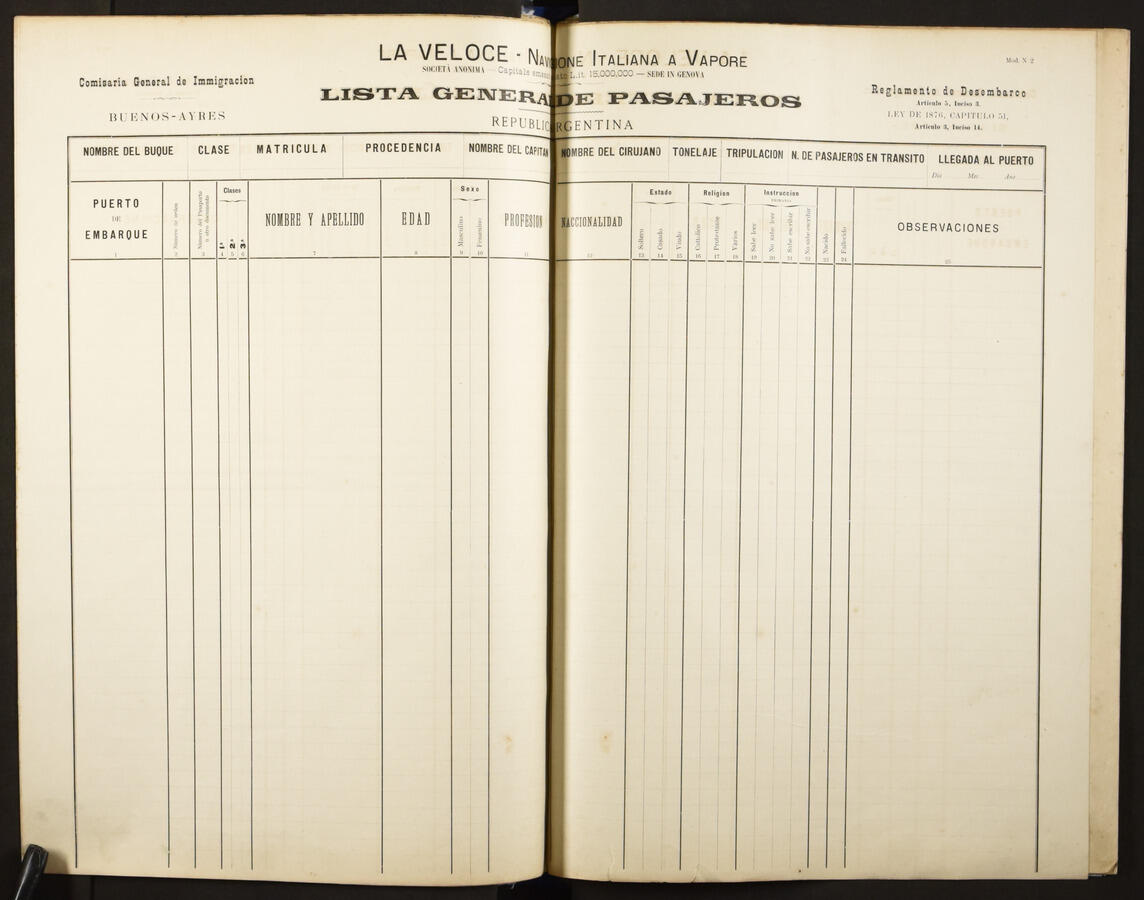 LA VELOCE - NAV ONE ITALIANA A VAPORE
SOCIETÀ ANONIMA — Capitale emes ato L.it. 15,000,000 — SEDE IN GENOVA
Mod. N 2
Comisaria General de Immigracion
BUENOS-AYRES
LISTA GENERA DE PASAJEROS
REPUBLIC RGENTINA
Reglamento de Desembarco
Articulo 5, Inciso 3.
LEY DE 1876, CAPITULO 51,
Articulo 3, Inciso 14.
NOMBRE DEL BUQUE CLASE MATRICULA PROCEDENCIA NOMBRE DEL CAPITAN NOMBRE DEL CIRUJANO TONELAJE TRIPULACION N. DE PASAJEROS EN TRANSITO LLEGADA AL PUERTO
Dia Mes Ano
PUERTO
DE
EMBARQUE
1
Número de orden
2
Número del Pasaporte
o otro documento
3
Clases
1ª 2ª 3ª
4 5 6
NOMBRE Y APELLIDO
7
EDAD
8
Sexo
Masculino Femenino
9 10
PROFESION
11
NACCIONALIDAD
12
Estado
Soltero Casado Viudo
13 14 15
Religion
Cattolico Protestante Varios
16 17 18
Instruccion
PRIMARIA
Sabe leer No sabe leer Sabe escribir No sabe escribir
19 20 21 22
Nacido
23
Fallecido
24
OBSERVACIONES
25